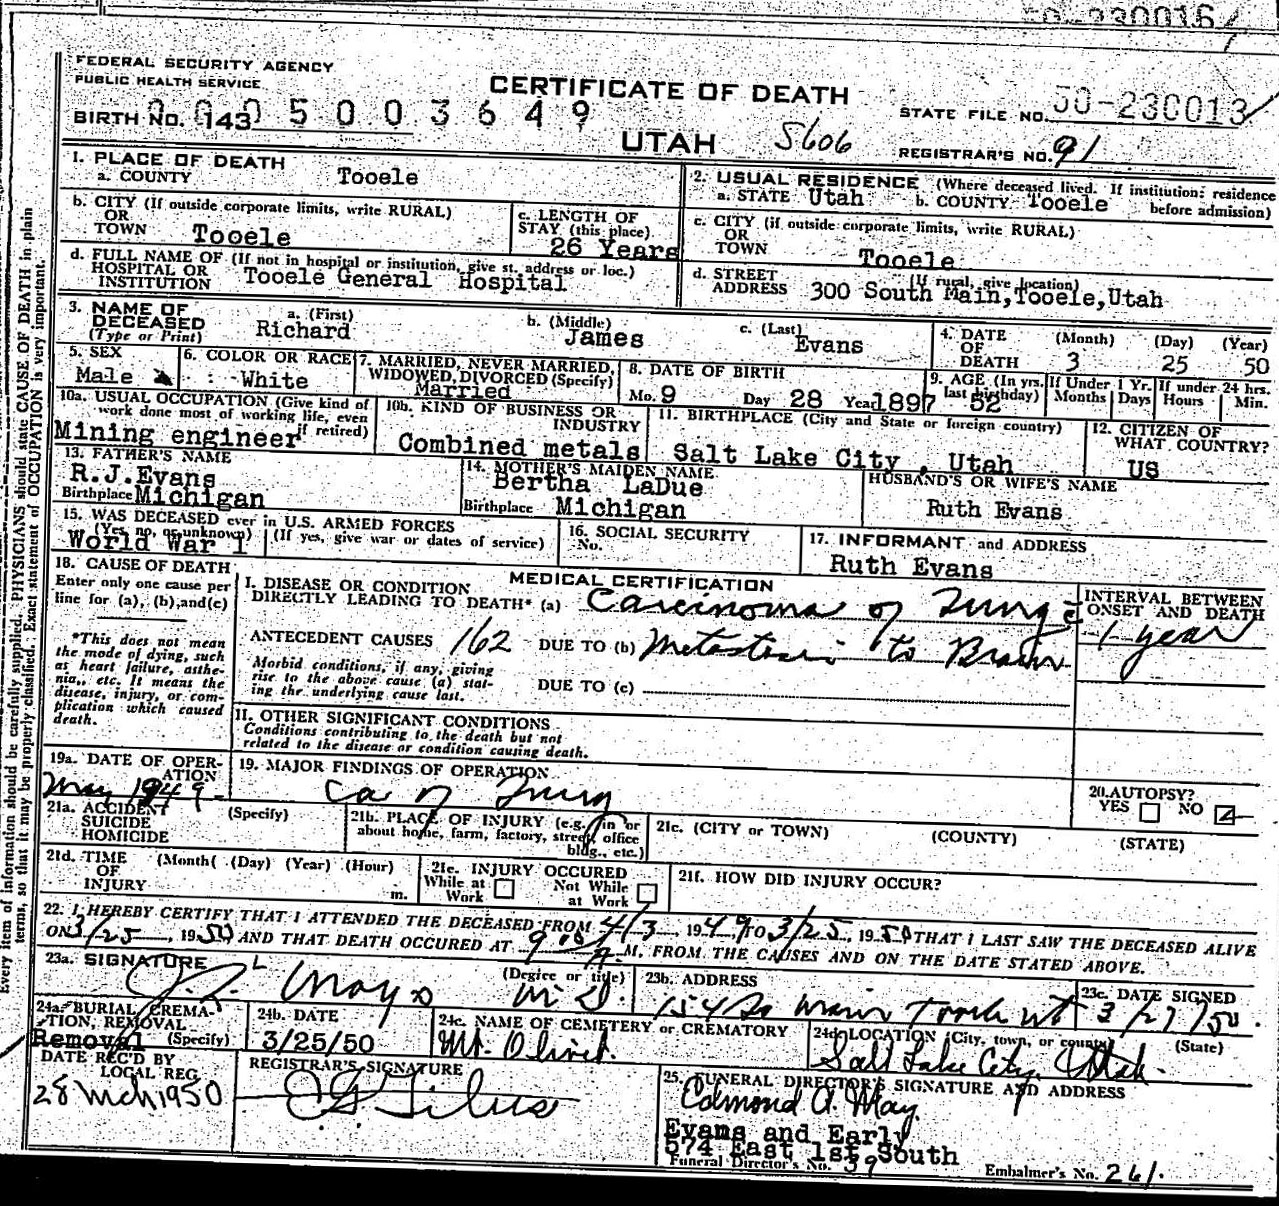 FEDERAL SECURITY AGENCY
PUBLIC HEALTH SERVICE
CERTIFICATE OF DEATH
STATE FILE NO. 50-230013
BIRTH NO. 143 5 0 0 3 6 4 9
UTAH 5606
REGISTRAR'S NO. 91
1. PLACE OF DEATH
a. COUNTY Tooele
2. USUAL RESIDENCE (Where deceased lived. If institution: residence before admission)
a. STATE Utah b. COUNTY Tooele
b. CITY (If outside corporate limits, write RURAL)
OR
TOWN Tooele
c. LENGTH OF
STAY (this place)
26 Years
c. CITY (if outside corporate limits, write RURAL)
OR
TOWN Tooele
d. FULL NAME OF (If not in hospital or institution, give st. address or loc.)
HOSPITAL OR
INSTITUTION Tooele General Hospital
d. STREET (If rural, give location)
ADDRESS 300 South Main, Tooele, Utah
3. NAME OF
DECEASED
(Type or Print)
a. (First) Richard
b. (Middle) James
c. (Last) Evans
4. DATE
OF
DEATH
(Month) (Day) (Year)
3 25 50
5. SEX
Male
6. COLOR OR RACE
White
7. MARRIED, NEVER MARRIED,
WIDOWED, DIVORCED (Specify)
Married
8. DATE OF BIRTH
Mo. 9 Day 28 Year 1897
9. AGE (In yrs. last birthday) 52
If Under 1 Yr. Months Days
If under 24 hrs. Hours Min.
10a. USUAL OCCUPATION (Give kind of
work done most of working life, even
if retired)
Mining engineer
10b. KIND OF BUSINESS OR
INDUSTRY
Combined metals
11. BIRTHPLACE (City and State or foreign country)
Salt Lake City, Utah
12. CITIZEN OF
WHAT COUNTRY?
US
13. FATHER'S NAME
R.J.Evans
Birthplace Michigan
14. MOTHER'S MAIDEN NAME
Bertha LaDue
Birthplace Michigan
HUSBAND'S OR WIFE'S NAME
Ruth Evans
15. WAS DECEASED ever in U.S. ARMED FORCES
(Yes, no, or unknown) (If yes, give war or dates of service)
World War 1
16. SOCIAL SECURITY
No.
17. INFORMANT and ADDRESS
Ruth Evans
18. CAUSE OF DEATH
Enter only one cause per
line for (a), (b), and (c)
*This does not mean
the mode of dying, such
as heart failure, asthe-
nia, etc. It means the
disease, injury, or com-
plication which caused
death.
MEDICAL CERTIFICATION
I. DISEASE OR CONDITION
DIRECTLY LEADING TO DEATH* (a) Carcinoma of Lung c̄
ANTECEDENT CAUSES 162 DUE TO (b) Metastasis to Brain
Morbid conditions, if any, giving
rise to the above cause (a) stat-
ing the underlying cause last.
DUE TO (c)
INTERVAL BETWEEN
ONSET AND DEATH
1 year
II. OTHER SIGNIFICANT CONDITIONS
Conditions contributing to the death but not
related to the disease or condition causing death.
19a. DATE OF OPER-
ATION
May 1949
19. MAJOR FINDINGS OF OPERATION
Ca of Lung
20. AUTOPSY?
YES NO
21a. ACCIDENT
SUICIDE
HOMICIDE
(Specify)
21b. PLACE OF INJURY (e.g., in or
about home, farm, factory, street, office
bldg., etc.)
21c. (CITY or TOWN) (COUNTY) (STATE)
21d. TIME (Month) (Day) (Year) (Hour)
OF
INJURY m.
21e. INJURY OCCURED
While at Work Not While at Work
21f. HOW DID INJURY OCCUR?
22. I HEREBY CERTIFY THAT I ATTENDED THE DECEASED FROM 4/3, 1949 TO 3/25, 1950 THAT I LAST SAW THE DECEASED ALIVE
ON 3/25, 1950 AND THAT DEATH OCCURED AT 9:00 A.M. FROM THE CAUSES AND ON THE DATE STATED ABOVE.
23a. SIGNATURE (Degree or title)
M.D.
23b. ADDRESS
154 So Main Tooele Ut
23c. DATE SIGNED
3/27/50.
24a. BURIAL, CREMA-
TION, REMOVAL
Removal (Specify)
24b. DATE
3/25/50
24c. NAME OF CEMETERY or CREMATORY
Mt. Olivet
24d. LOCATION (City, town, or county) (State)
Salt Lake City, Utah.
DATE REC'D BY
LOCAL REG.
28 Mch 1950
REGISTRAR'S SIGNATURE
25. FUNERAL DIRECTOR'S SIGNATURE AND ADDRESS
Edmond A. May
Evans and Early
574 East 1st South
Funeral Director's No. 39 Embalmer's No. 261.
Every item of information should be carefully supplied. PHYSICIANS should state CAUSE OF DEATH in plain
terms, so that it may be properly classified. Exact statement of OCCUPATION is very important.